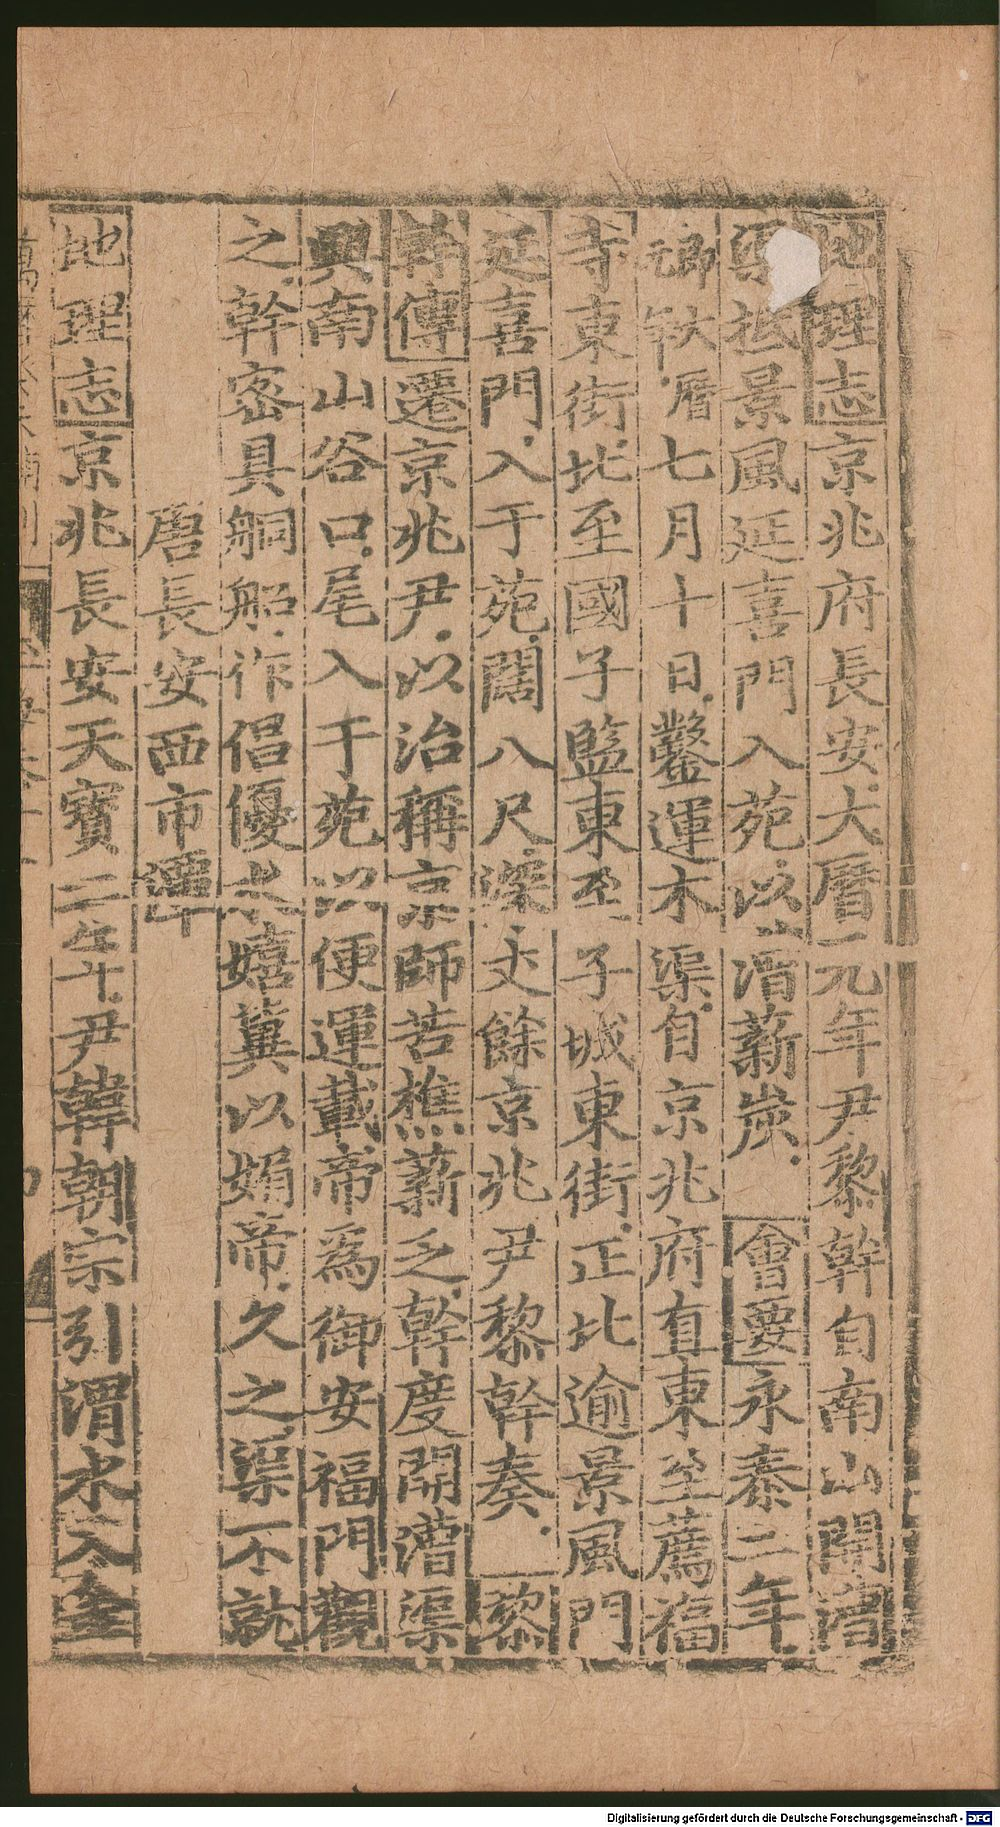 地理志京兆府長安大曆元年尹黎幹自南山開漕
渠抵景風延喜門入苑以漕薪炭會要永泰二年
即大曆元年七月十日鑿運木渠自京兆府直東至薦福
寺東街北至國子監東至子城東街正北逾景風門
延喜門入于苑闊八尺深丈餘京兆尹黎幹奏黎
幹傳遷京兆尹以治稱京師苦樵薪乏幹度開漕渠
興南山谷口尾入于苑以便運載帝為御安福門觀
之幹密具舸船作倡優水嬉冀以媚帝久之渠不就
唐長安西市潭
地理志京兆長安天寶二年尹韓朝宗引渭水入金
Digitalisierung gefördert durch die Deutsche Forschungsgemeinschaft - DFG